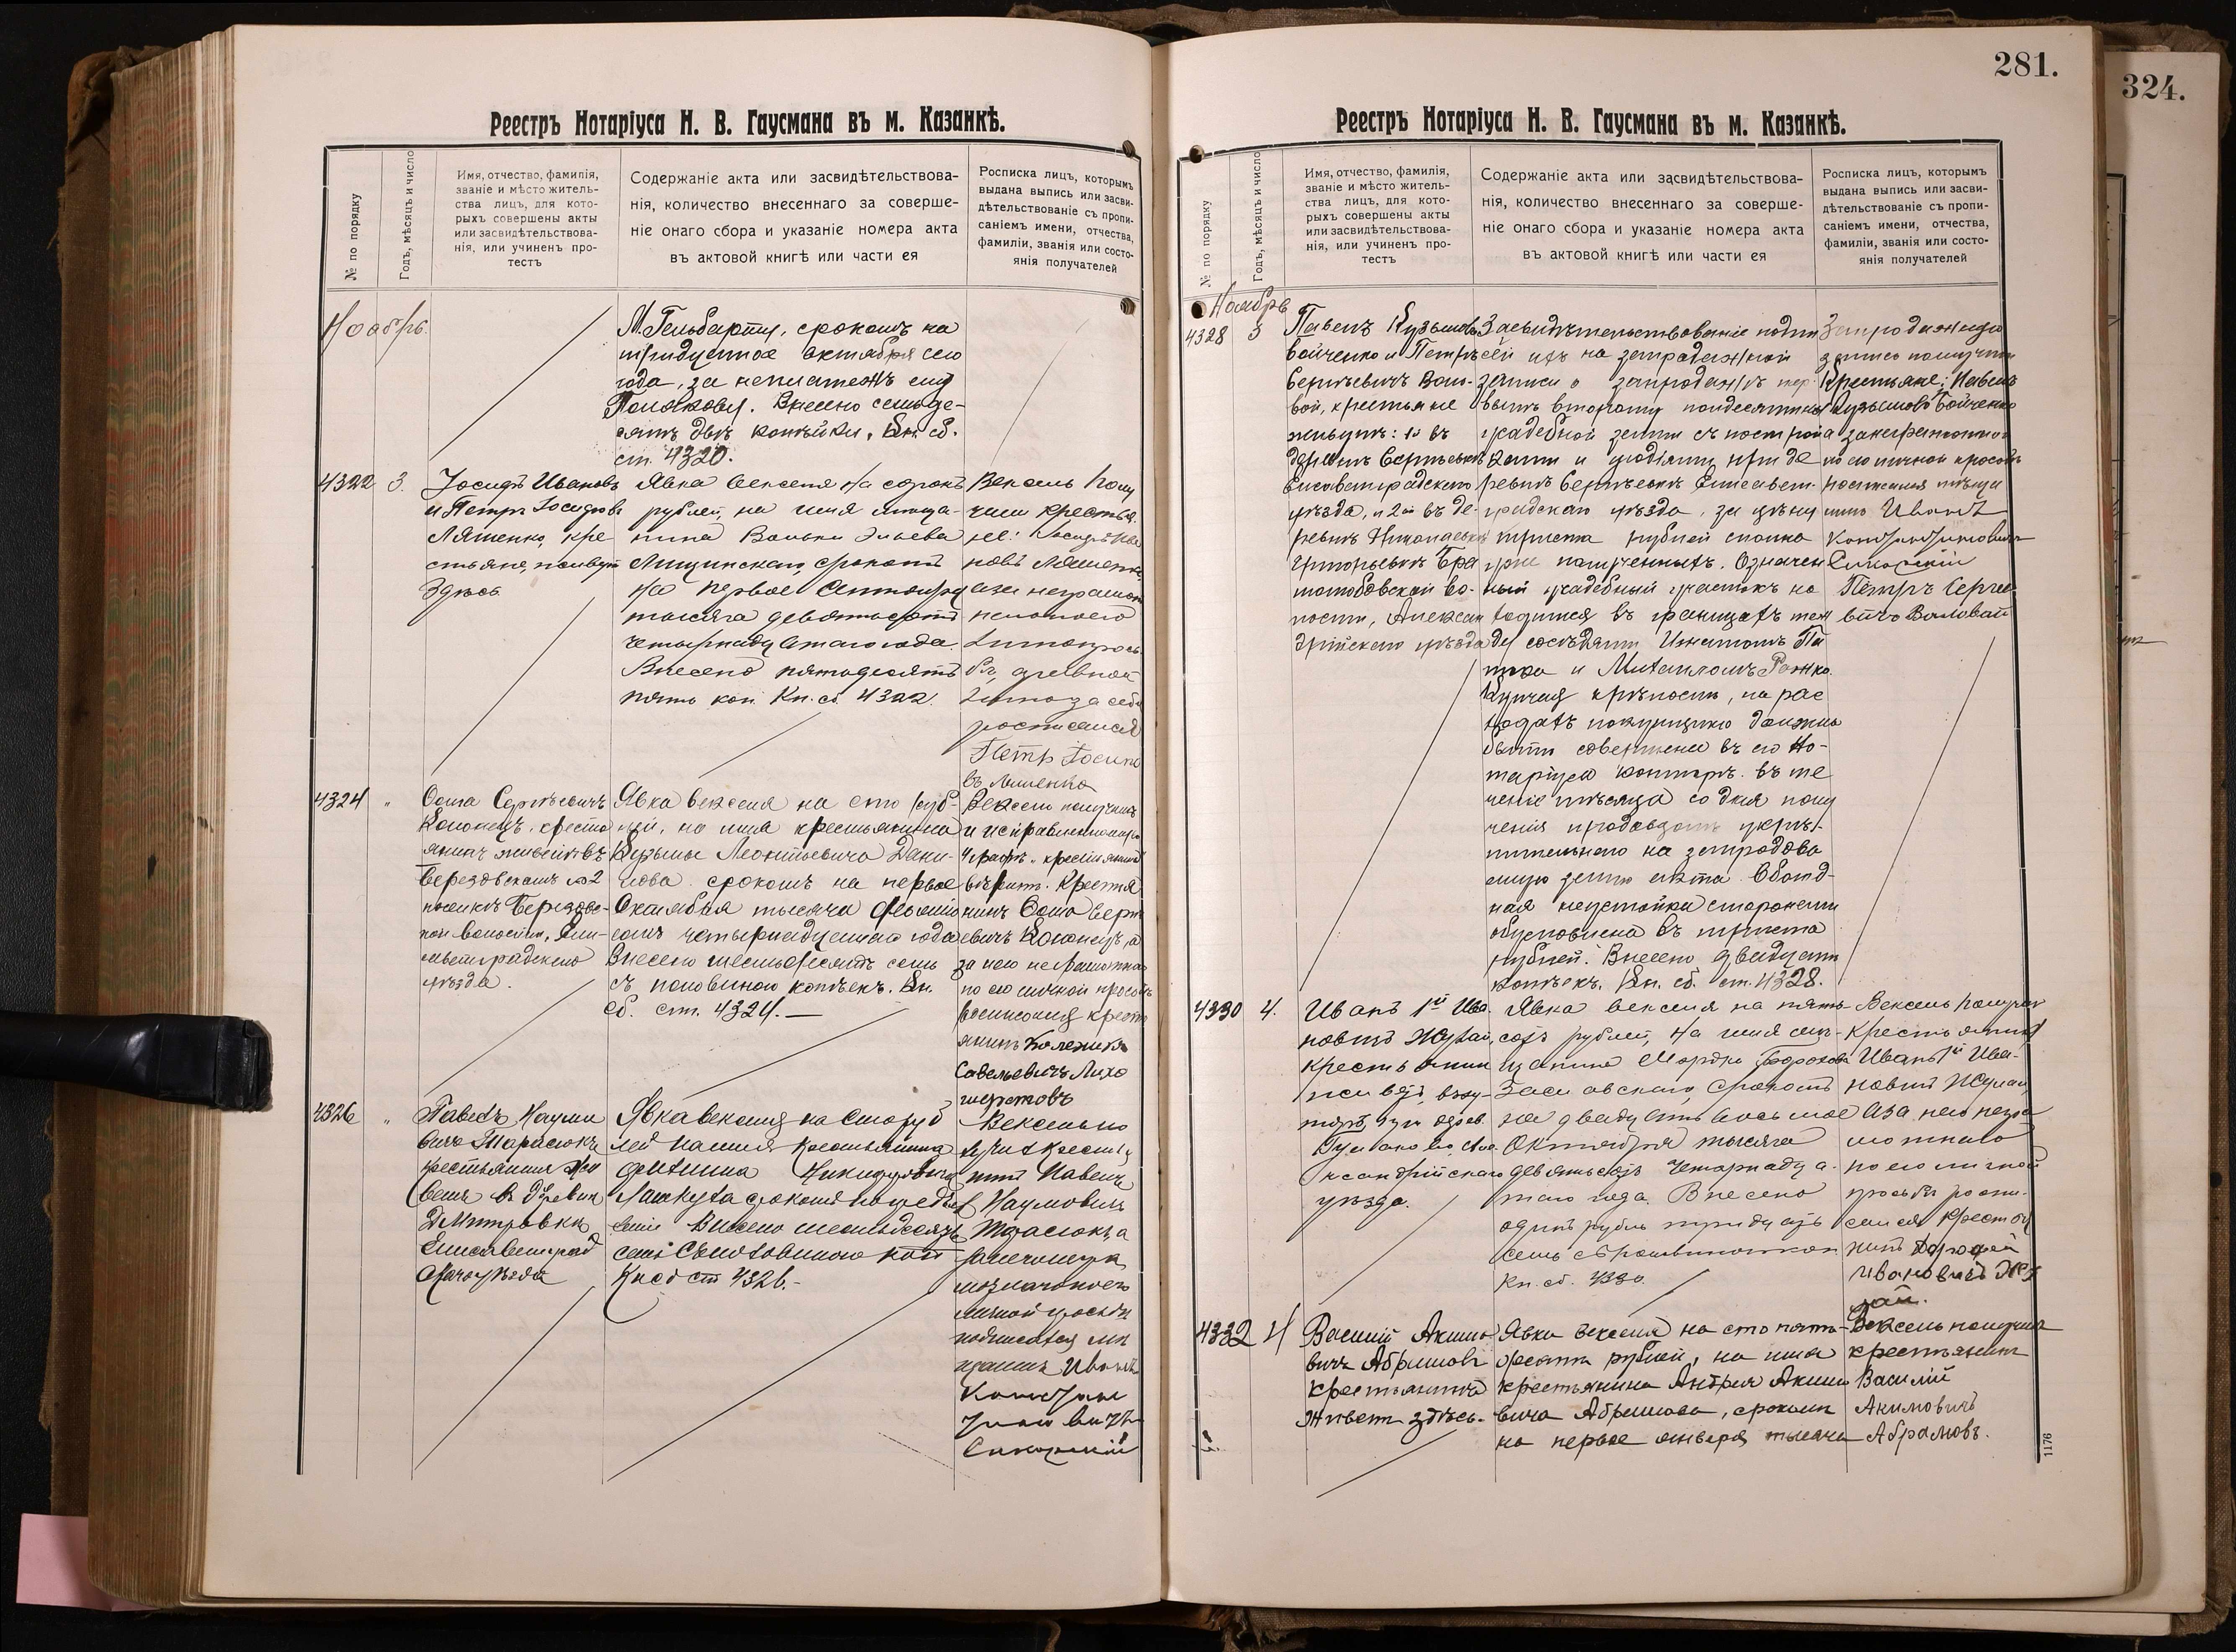 Реестръ Нотаріуса Н. В. Гаусмана въ м. Казанкѣ.
№ по порядку
Годъ, мѣсяцъ и число
Имя, отчество, фамилія,
званіе и мѣсто житель-
ства лицъ, для кото-
рыхъ совершены акты
или засвидѣтельствова-
нія, или учиненъ про-
тестъ
Содержаніе акта или засвидѣтельствова-
нія, количество внесеннаго за соверше-
ніе онаго сбора и указаніе номера акта
въ актовой книгѣ или части ея
Росписка лицъ, которымъ
выдана выпись или засви-
дѣтельствованіе съ пропи-
саніемъ имени, отчества,
фамиліи, званія или состо-
янія получателей
Ноябрь
М. Гельбарту, срокомъ на
тридцатое октября сего
года, за неплатежъ ему
Полякову. Внесено семьде-
сятъ двѣ копѣйки. Кн. сб.
ст. 4320.
4322
3.
Іосифъ Ивановъ
и Петръ Іосифовъ
Ляшенко, кре-
стьяне, живутъ
Здѣсь
Явка векселя на сорокъ
рублей, на имя мѣща-
нина Вольки Эльева
Лищинскаго, срокомъ
на первое Октября
тысяча девятьсотъ
четырнадцатаго года.
Внесено пятьдесятъ
пять коп. Кн. сб. 4322.
Вексель полу
чили крестья
не: Іосифъ Ива
новъ Ляшенко
а за неграмот
росписался
Петръ Іосифо
въ Ляшенко
4324
"
Ѳома Сергѣевичъ
Колонецъ, кресть
янинъ живетъ въ
Березовскомъ № 2
поселкѣ Березовс-
кой волости, Ели-
саветградскаго
уѣзда.
Явка векселя на сто руб-
лей, на имя крестьянина
Кузьмы Леонтьевича Дани-
лова срокомъ на первое
Октября тысяча девять
сотъ четырнадцатаго года
Внесено шестьдесятъ семь
съ половиною копѣекъ. Кн.
сб. ст. 4324.—
Вексель получилъ
"крестьянинъ"
вѣрить. Крестья
нинъ Ѳома Серг
евичъ Колонецъ, а
за него неграмотнаго
по его личной просьбѣ
росписался кресть
янинъ
Савельевичъ Лихо
шерстовъ
4326
"
Павелъ Наумо
вичъ Тарасюкъ
крестьянинъ жи
ветъ въ деревни
Дмитровкѣ
Елисаветград
скаго уѣзда
Явка векселя на сто руб
лей на имя крестьянина
Никифоровича
срокомъ по предъяв
леніи Внесено шестьдесятъ
семь съ половиною коп
Кн сб ст 4326.-
Вексель по
лучилъ крестья
нинъ Павелъ
Наумовичъ
Тарасюкъ а
личной просьбѣ
подписался мѣ
щанинъ Иванъ
Константи
новичъ
Сикорскій
281.
324.
Реестръ Нотаріуса Н. В. Гаусмана въ м. Казанкѣ.
№ по порядку
Годъ, мѣсяцъ и число
Имя, отчество, фамилія,
званіе и мѣсто житель-
ства лицъ, для кото-
рыхъ совершены акты
или засвидѣтельствова-
нія, или учиненъ про-
тестъ
Содержаніе акта или засвидѣтельствова-
нія, количество внесеннаго за соверше-
ніе онаго сбора и указаніе номера акта
въ актовой книгѣ или части ея
Росписка лицъ, которымъ
выдана выпись или засви-
дѣтельствованіе съ пропи-
саніемъ имени, отчества,
фамиліи, званія или состо-
янія получателей
Ноябрь
4328
3
Павелъ Кузьмовъ
Бойченко и Петръ
Сергѣевичъ Воло-
вой, крестьяне
живутъ: 1й въ
деревнѣ Сергѣевкѣ
Елисаветградскаго
уѣзда, и 2й въ де-
ревнѣ Николаевкѣ
Григорьевкѣ Бра
толюбовской во-
лости, Алексан
дрійскаго уѣзда
Засвидѣтельствованіе подпи
сей ихъ на запродажной
записи о запродажѣ пер-
вымъ второму полдесятины
усадебной земли съ построй
ками и угодіями, при де
ревнѣ Сергѣевкѣ Елисавет-
градскаго уѣзда, за цѣну
триста рублей сполна
уже полученныхъ. Означен
ный усадебный участокъ на
ходится въ границахъ меж
ду сосѣдями Игнатомъ
и Михаиломъ Рожко.
Купчая крѣпость, на рас
ходахъ покупщика должна
быть совершена въ его Но-
таріуса конторѣ въ те
ченіе мѣсяца со дня полу
ченія продавцомъ укрѣ-
пительнаго на запродавае
мую землю акта. Обоюд-
ная неустойка сторонами
обусловлена въ триста
рублей. Внесено двадцать
копѣекъ. Кн. сб. ст. 4328.
Запродажную
запись получили
Крестьяне: Павелъ
Кузьмовъ Бойченко
а за неграмотнаго
по его личной просьбѣ
росписался мѣща
нинъ Иванъ
Константиновичъ
Сикорскій
Петръ Серге
вичъ Воловой
4330
4.
Иванъ 1й Ива
новъ Жулай,
крестьянинъ
живетъ, въ ху-
торѣ при дерев.
Але
ксандрійскаго
уѣзда.
Явка векселя на пять-
сотъ рублей, на имя мѣ-
щанина Мордки Борохова
Заславскаго, срокомъ
на двадцать восьмое
Октября тысяча
девятьсотъ четырнадца-
таго года. Внесено
одинъ рубль тридцать
семь съ половиною коп
Кн. сб. 4330.
Вексель получилъ
крестьянинъ
Иванъ 1й Ива-
новъ Жулай,
а за него негра
мотнаго
по его личной
просьбѣ роспи-
сался крестья
нинъ Дорофей
Ивановичъ Жу
лай.
4332
4
Василій Акимо
вичъ Абрамовъ
крестьянинъ
живетъ здѣсь.
Явка векселя на сто пять-
десятъ рублей, на имя
крестьянина Андрея Акимо
вича Абрамова, срокомъ
на первое января тысяча
Вексель получилъ
крестьянинъ
Василій
Акимовичъ
Абрамовъ.
1176